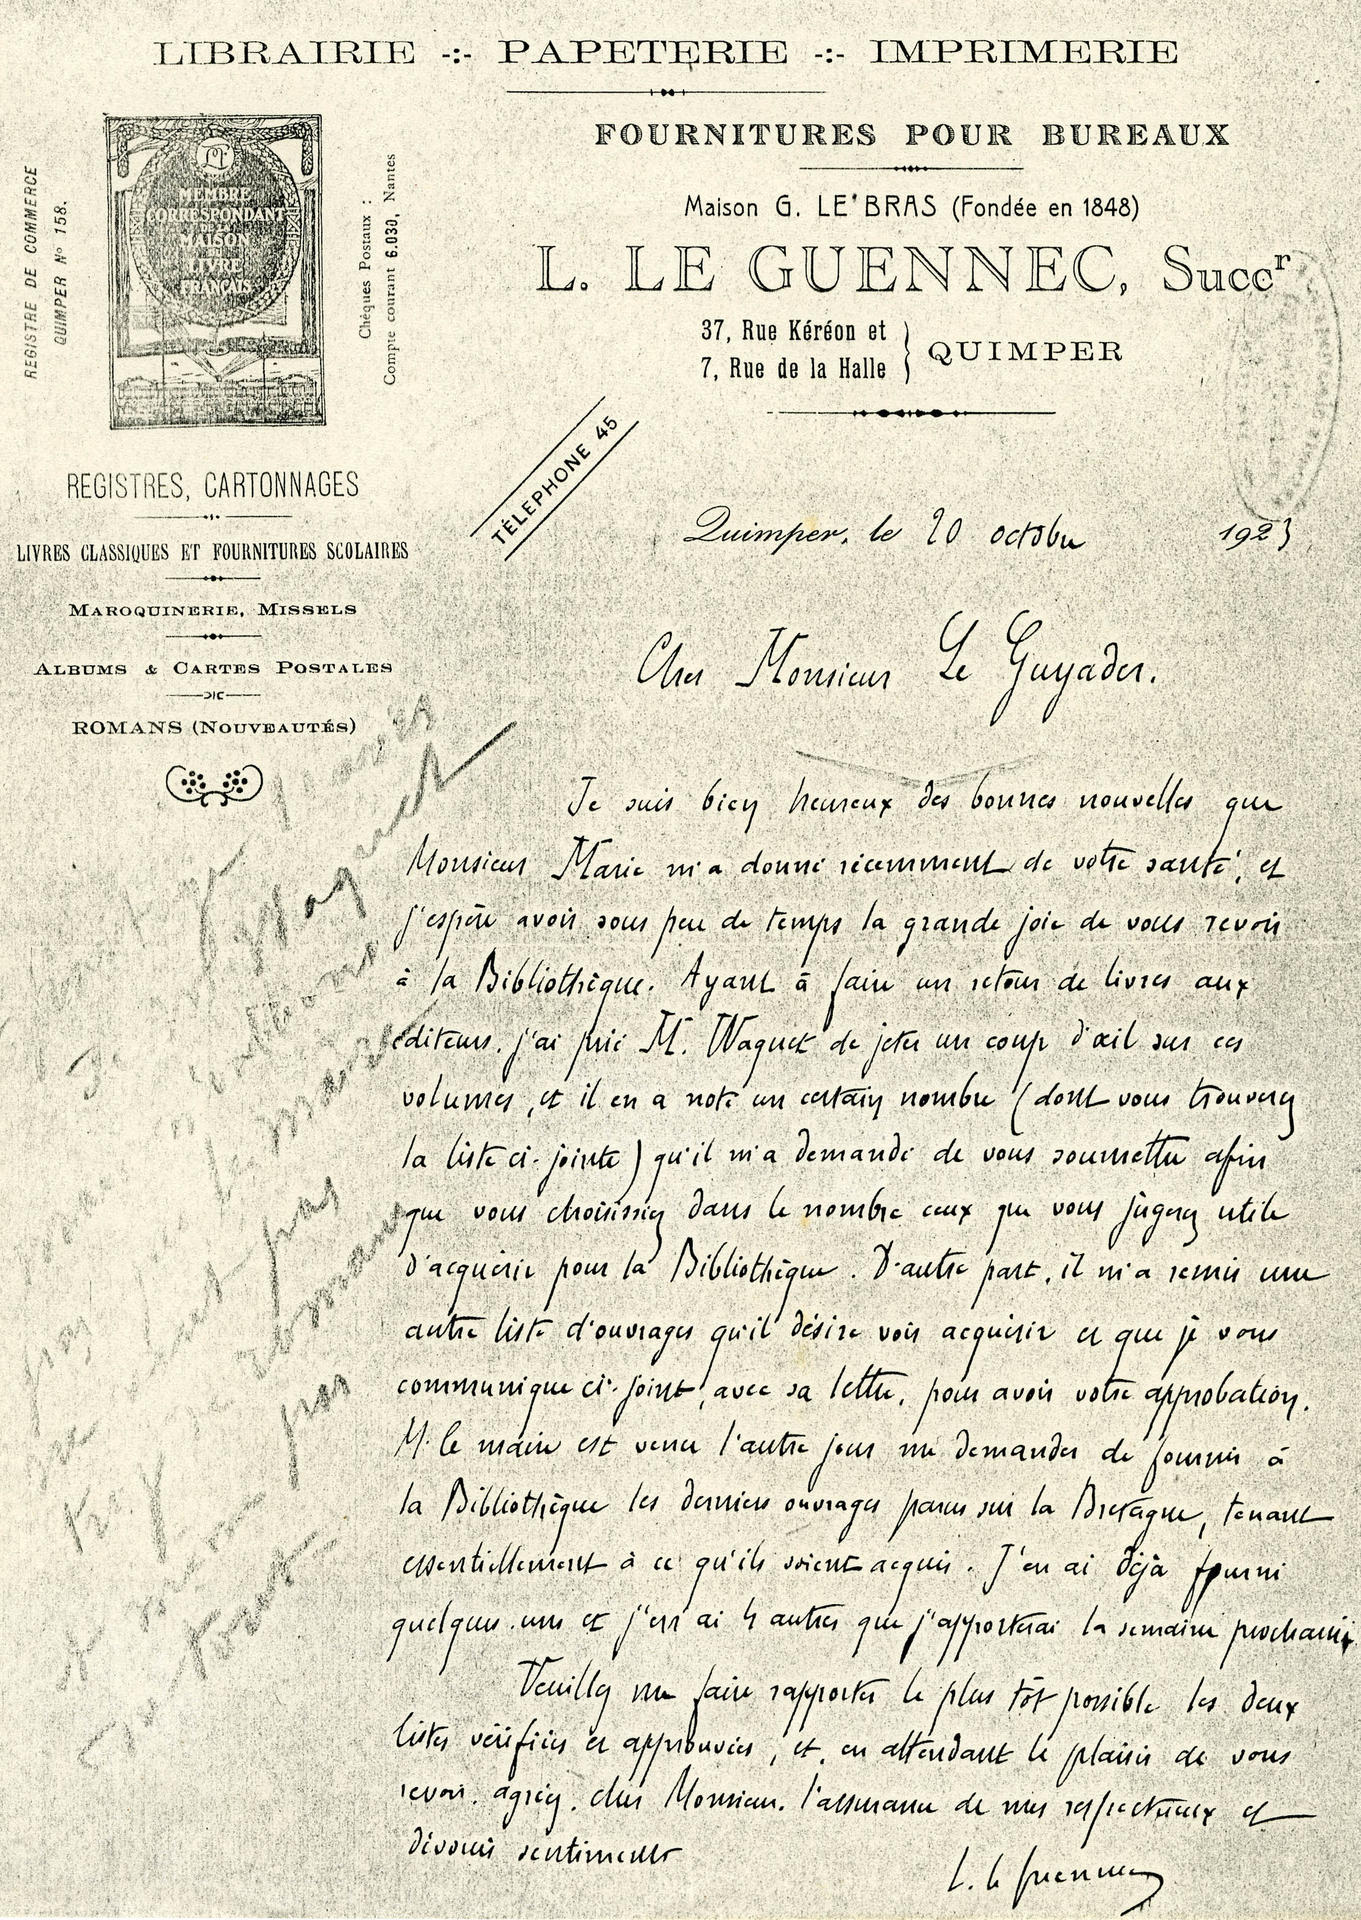 LIBRAIRIE -:- PAPETERIE -:- IMPRIMERIE
FOURNITURES POUR BUREAUX
Maison G. LE BRAS (Fondée en 1848)
L. LE GUENNEC, Succr
37, Rue Kéréon et
7, Rue de la Halle
QUIMPER
REGISTRE DE COMMERCE
QUIMPER No 158.
LF
MEMBRE
CORRESPONDANT
DE LA
MAISON
DU
LIVRE
FRANÇAIS
Chèques Postaux :
Compte courant 6.030, Nantes
TÉLÉPHONE 45
REGISTRES, CARTONNAGES
LIVRES CLASSIQUES ET FOURNITURES SCOLAIRES
MAROQUINERIE, MISSELS
ALBUMS & CARTES POSTALES
ROMANS (NOUVEAUTÉS)
Quimper, le 20 octobre 1923
Cher Monsieur Le Guyader.
Je suis bien heureux des bonnes nouvelles que
Monsieur Marie m'a donné récemment de votre santé, et
j'espère avoir sous peu de temps la grande joie de vous revoir
à la Bibliothèque. Ayant à faire un retour de livres aux
éditeurs, j'ai prié M. Waquet de jeter un coup d'œil sur ces
volumes, et il en a noté un certain nombre (dont vous trouverez
la liste ci-jointe) qu'il m'a demandé de vous soumettre afin
que vous choisissiez dans le nombre ceux que vous jugerez utile
d'acquérir pour la Bibliothèque. D'autre part, il m'a remis une
autre liste d'ouvrages qu'il désire voir acquérir et que je vous
communique ci-joint, avec sa lettre, pour avoir votre approbation.
M. le maire est venu l'autre jour me demander de fournir à
la Bibliothèque les derniers ouvrages parus sur la Bretagne, tenant
essentiellement à ce qu'ils soient acquis. J'en ai déjà fourni
quelques-uns et j'en ai 4 autres que j'apporterai la semaine prochaine
Veuillez me faire rapporter le plus tôt possible les deux
listes vérifiées et approuvées, et, en attendant le plaisir de vous
revoir, agréez, cher Monsieur, l'assurance de mes respectueux et
dévoués sentiments
L. Le Guennec